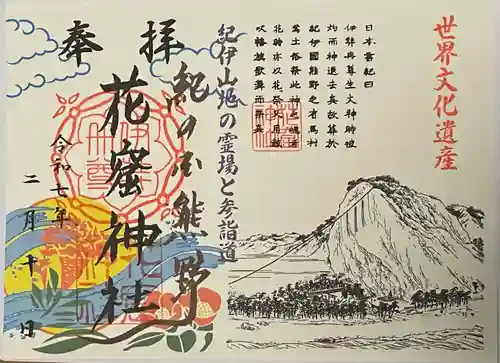 世界文化遺産
日本書紀曰
伊弉冉尊生火神時被
灼而神退去矣故葬於
紀伊國熊野之有馬村
焉土俗祭此神之魂者
花時亦以花祭又用鼓
吹幡旗歌舞而祭矣
紀伊山地の霊場と参詣道
奉拝
紀の国熊野
花窟神社
令和七年
二月十日